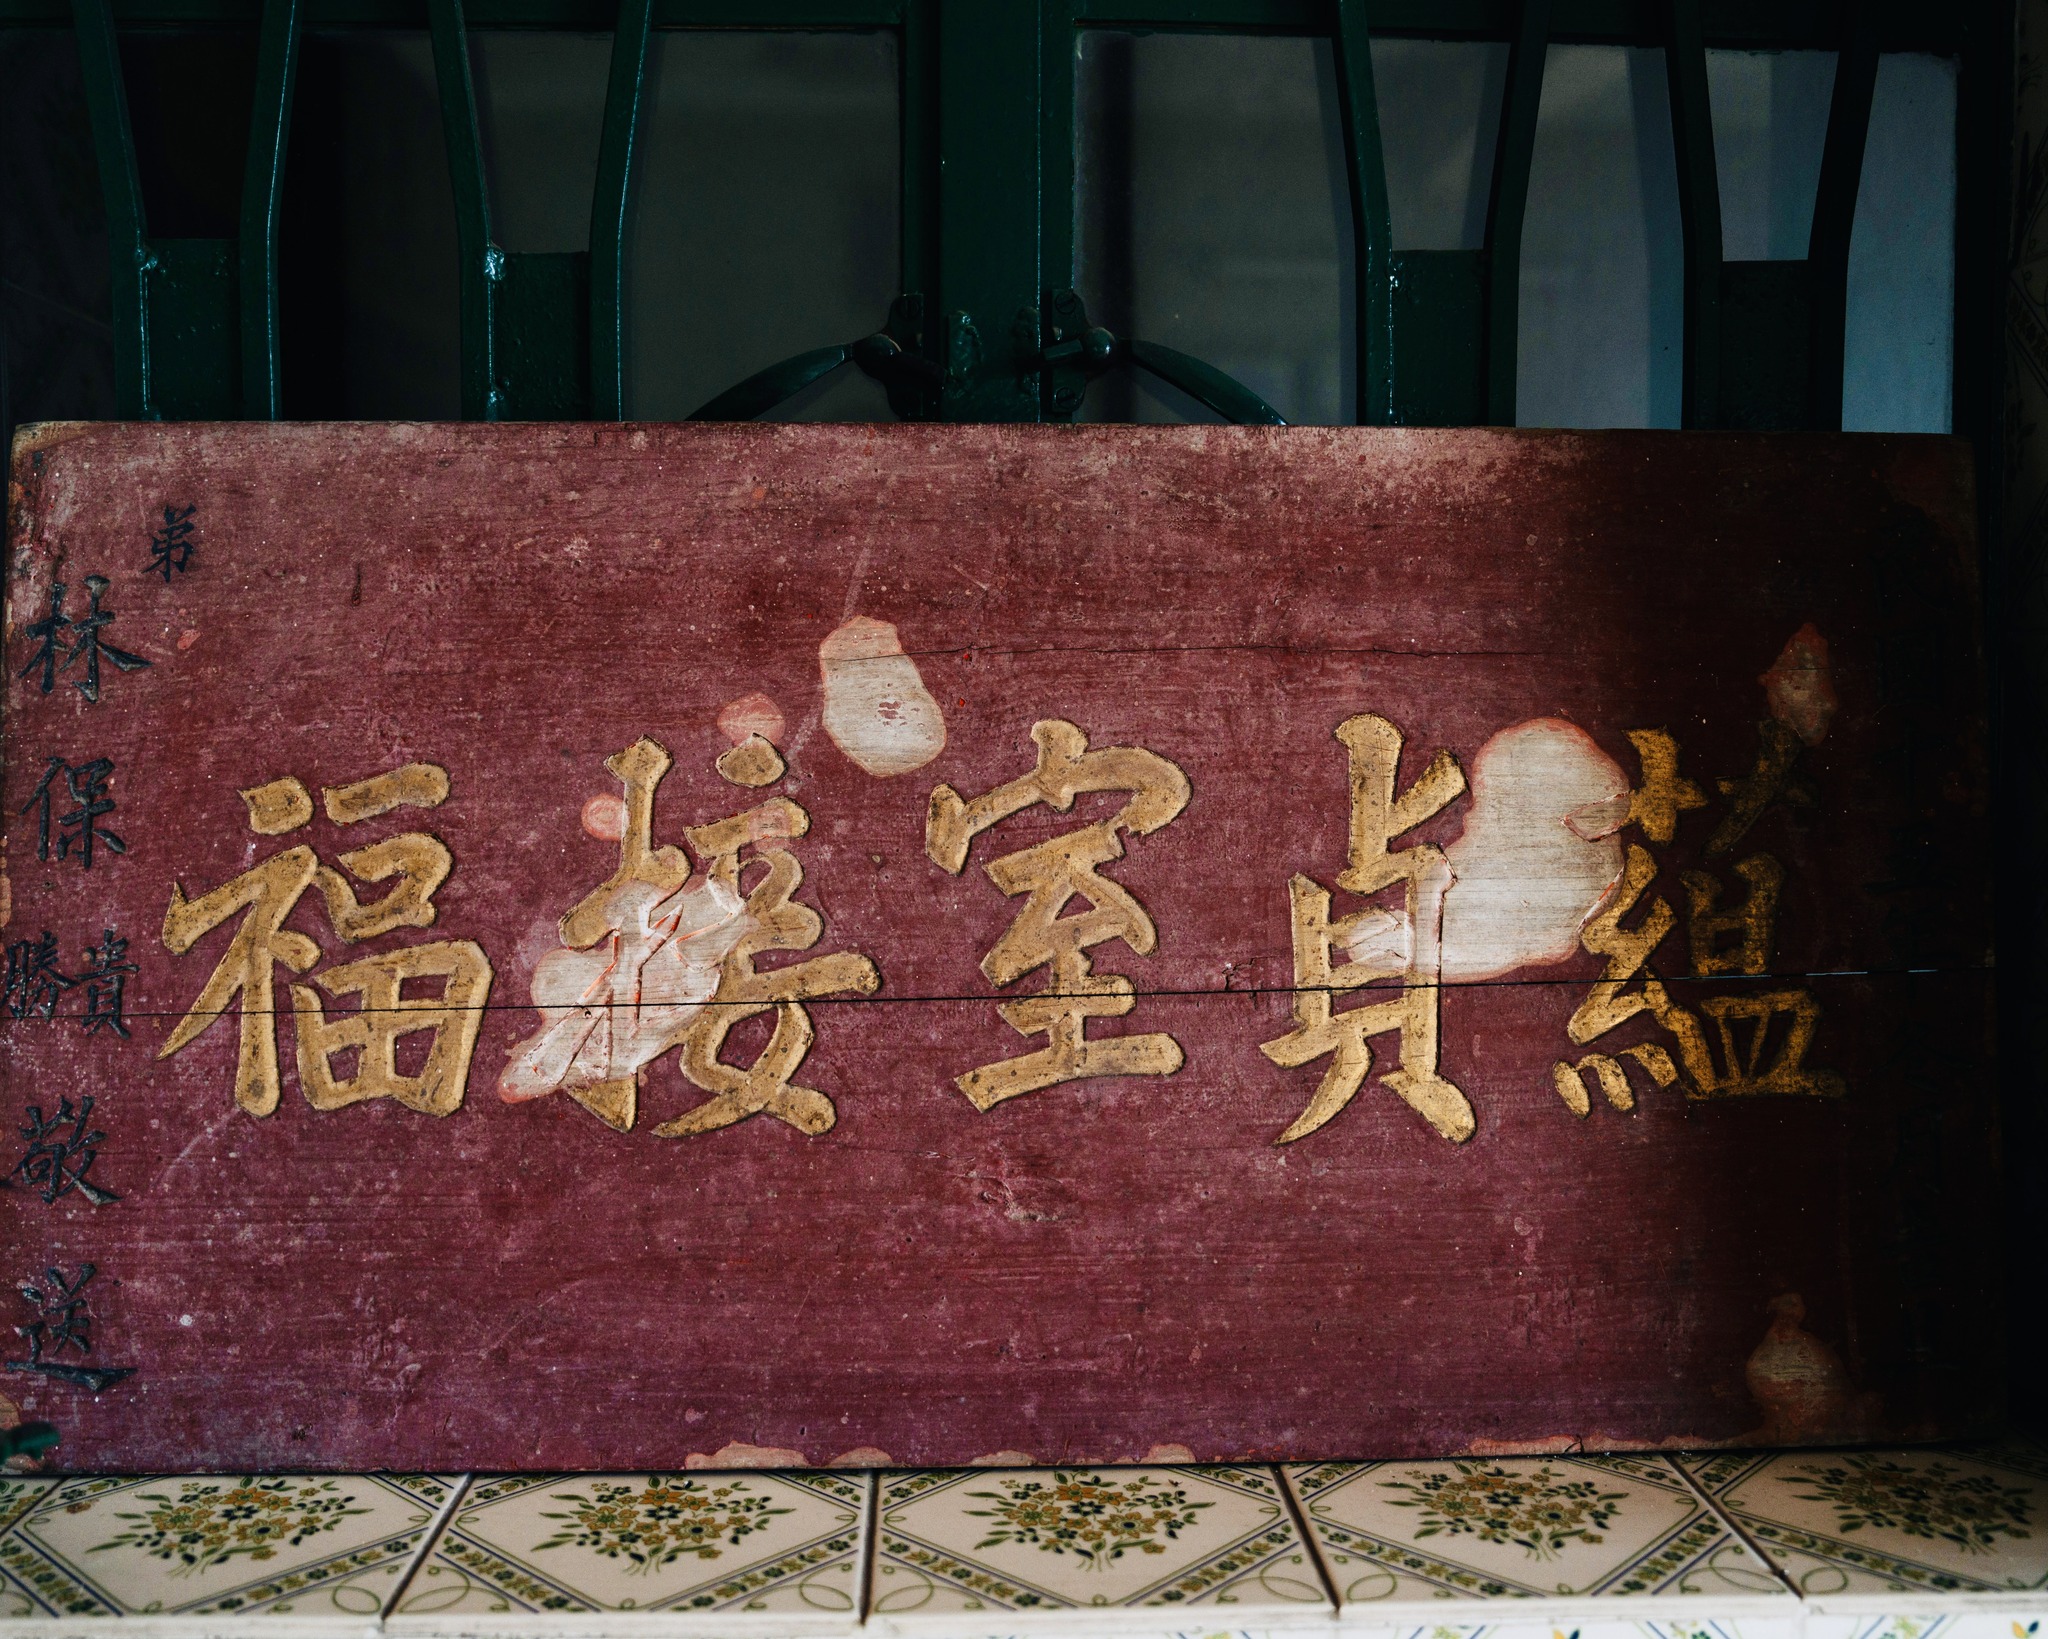 蘊貞室接福
弟林保貴勝敬送